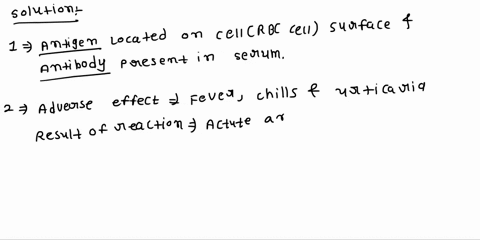 Solution:-
1 ⇒ Antigen Located on cell (RBC cell) surface &
Antibody present in serum.
2 ⇒ Adverse effect ⇒ Fever, chills & urticaria
Result of reaction ⇒ Actute ar